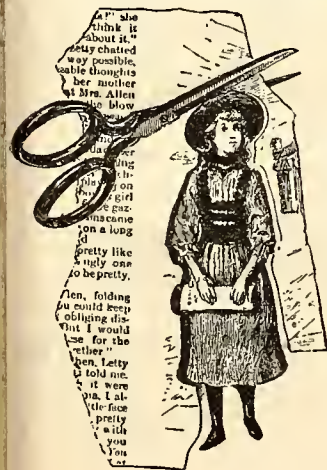 " she
think it
about it."
etty chatted
way possible,
able thoughts
her mother
at Mrs. Allen
the blow
on
girl
gaz-
came
on a long
d
pretty like
ugly one
to be pretty.
hen, folding
ou could keep
obliging dis-
But I would
se for the
ether"
hen, Letty
I told me.
it were
ma, I al-
tle face
pretty
with
you
You